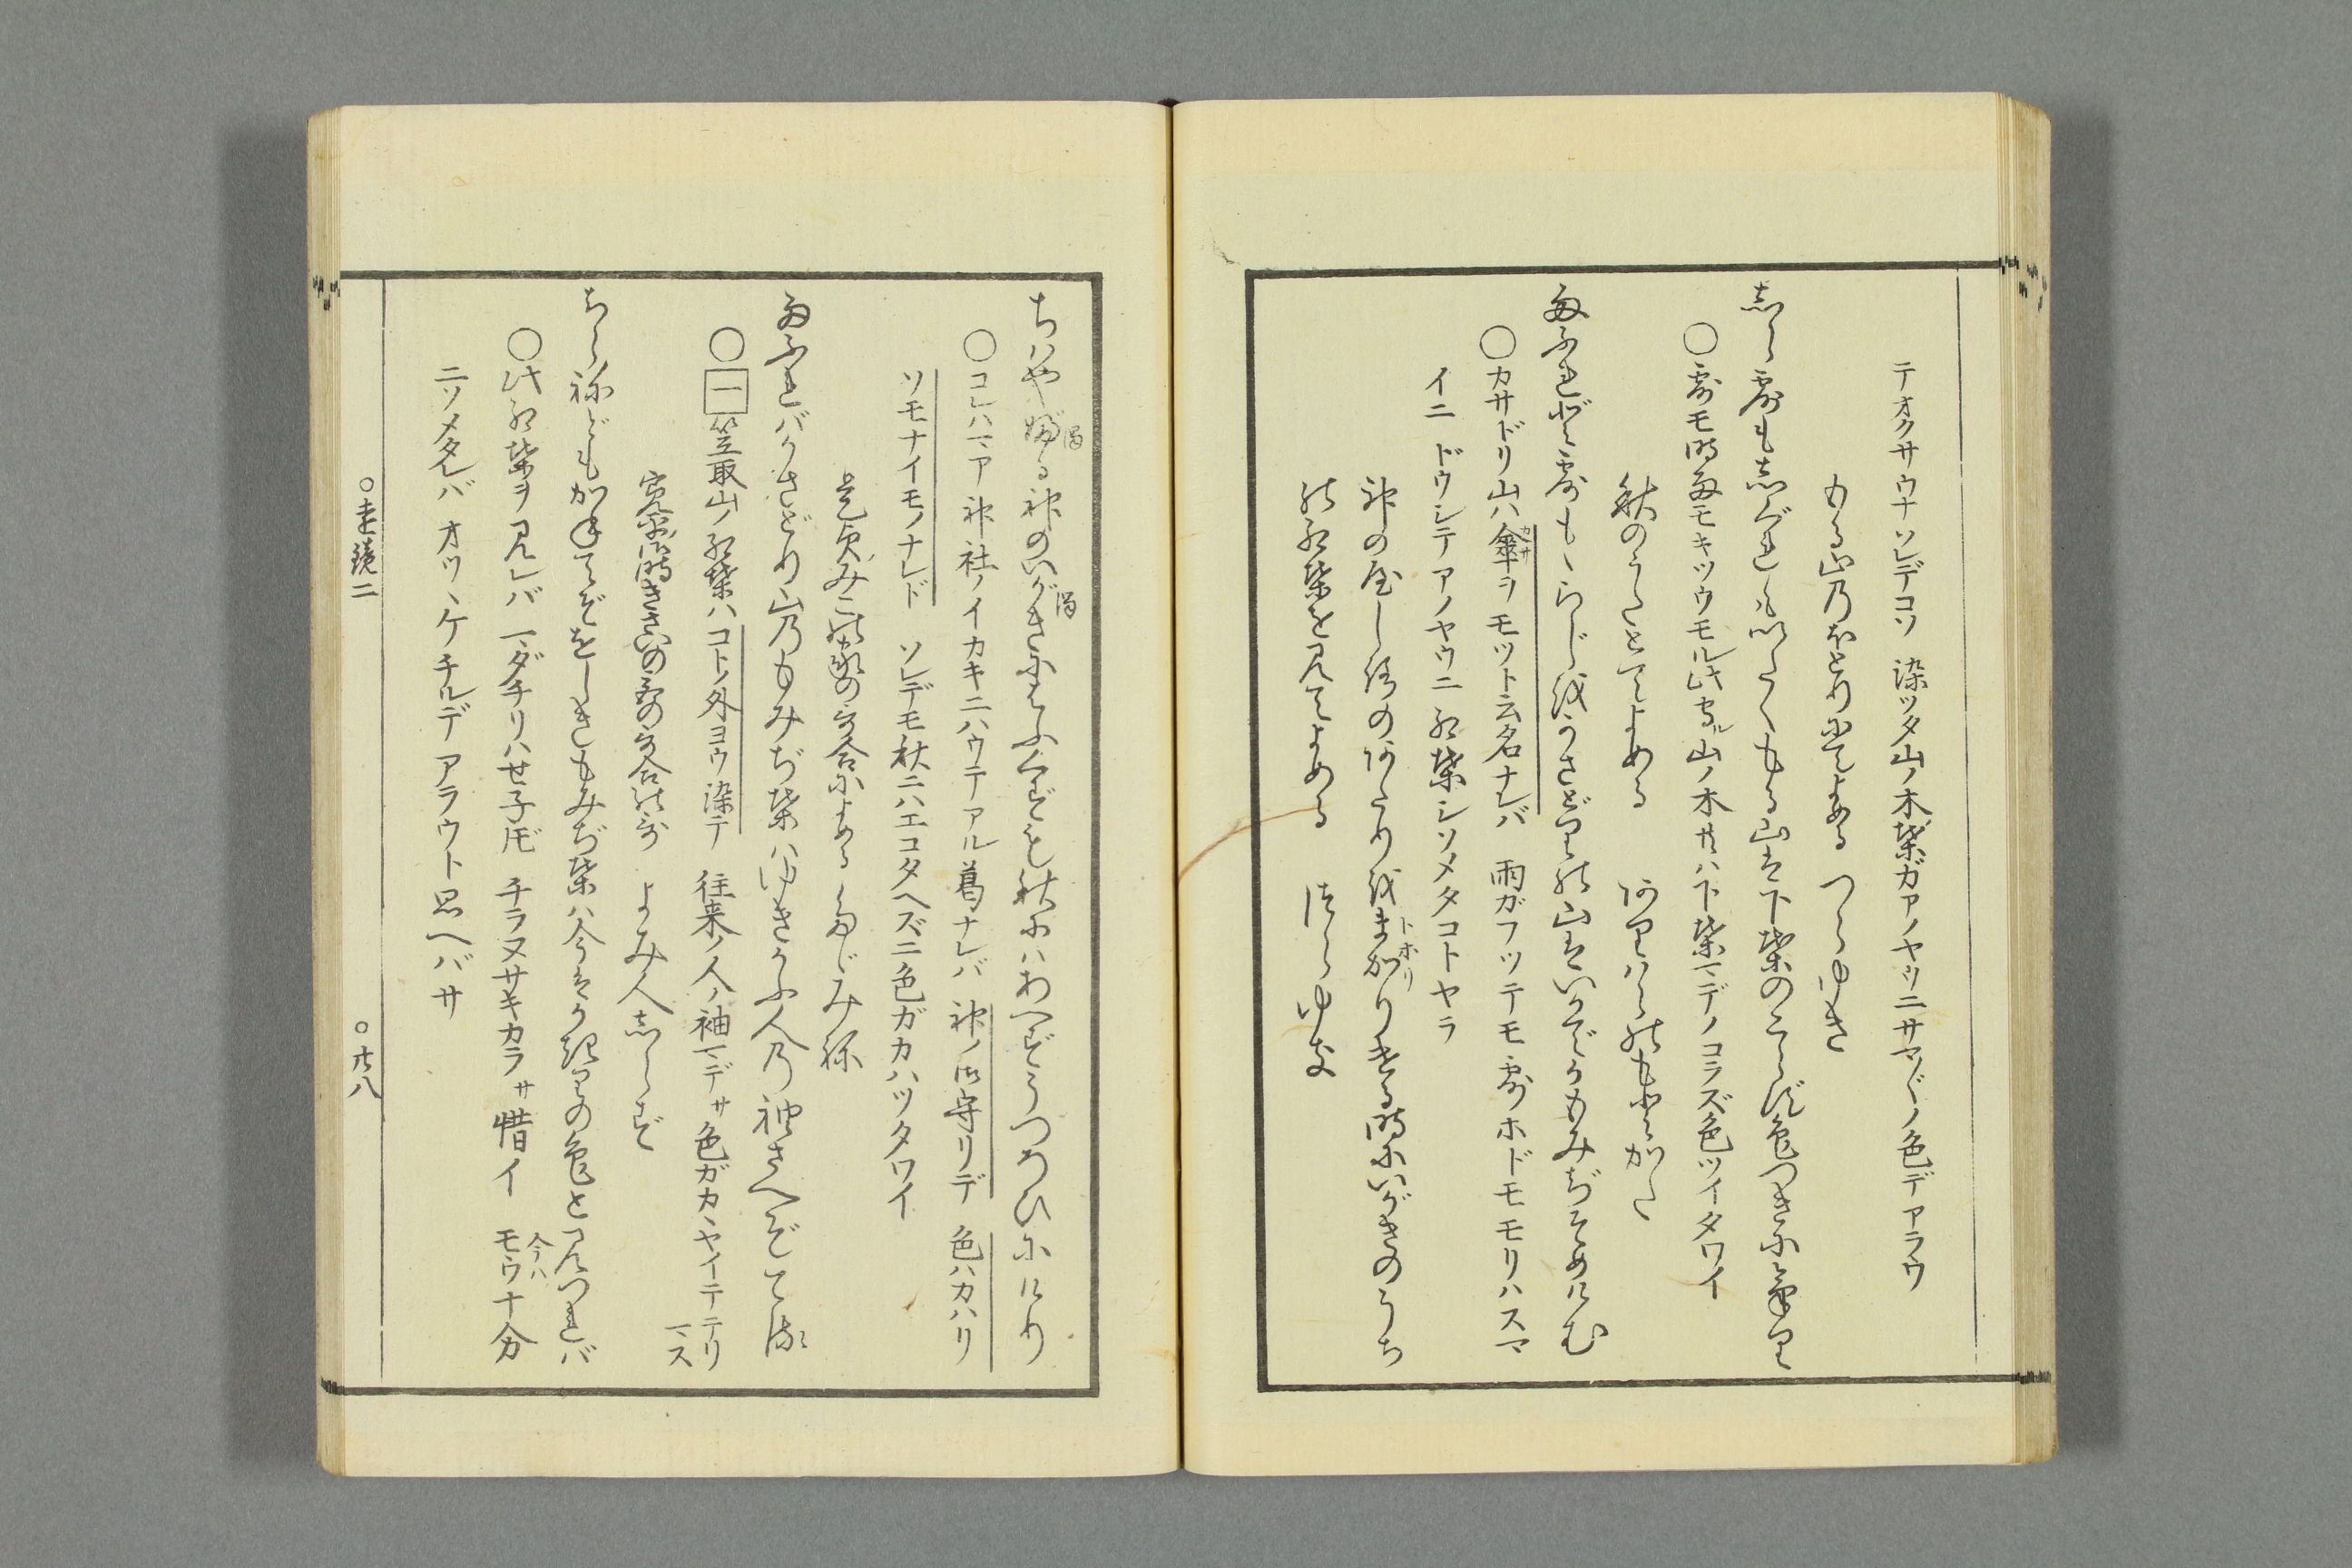 テオクサウナソレデコソ 染ツタ山ノ木葉ガアノヤウニサマ〴〵ノ色デアラウ
もる山のほとりにてよめる つらゆき
しら露も志ぐれもいたくもる山は下葉のこらず色つきにけり
○露モ時雨モキツウモル此守ル山ノ木共ハ下葉マデノコラズ色ツイタワイ
秋のうたとてよめる 在はらのもとかた
雨ふれど露ももらじをかさどりの山はいかでかもみぢそめけむ
○カサドリ山ハ傘ヲモツト云名ナレバ 雨ガフツテモ露ホドモモリハスマ
カサ
イニ ドウシテアノヤウニ紅葉シソメタコトヤラ
神の屋しろのあたりをまかりける時にいがきのうち
トホリ
の紅葉を見てよめる つらゆき
ちはや婦る神のいがきにはふくずも秋にはあへずうつろひにけり
濁 濁
○コレハマア神社ノイカキニハウテアル葛ナレバ 神ノ御守リデ 色ハカハリ
ソモナイモノナレド ソレデモ秋ニハエコタヘズニ色ガカハツタワイ
是貞みこの家の歌合によめる たゞみね
雨ふればかさどり山のもみぢ葉はゆきかふ人の袖さへぞてる
○一 笠取山ノ紅葉ハコトノ外ヨウ染テ 往来ノ人ノ袖マデサ色ガカヽヤイテテリ
マス
寛平御時きさいの宮の歌合の歌 よみ人しらず
ちらねどもかねてぞをしきもみぢ葉は今はかぎりの色と見つれば
○此紅葉ヲ見レバ マダチリハセ子𪜈 チラヌサキカラサ惜イ モウ十分
今ハ
ニソメタレバ オツヽケチルデアラウト思ヘバサ
○遠鏡二 ○廿八